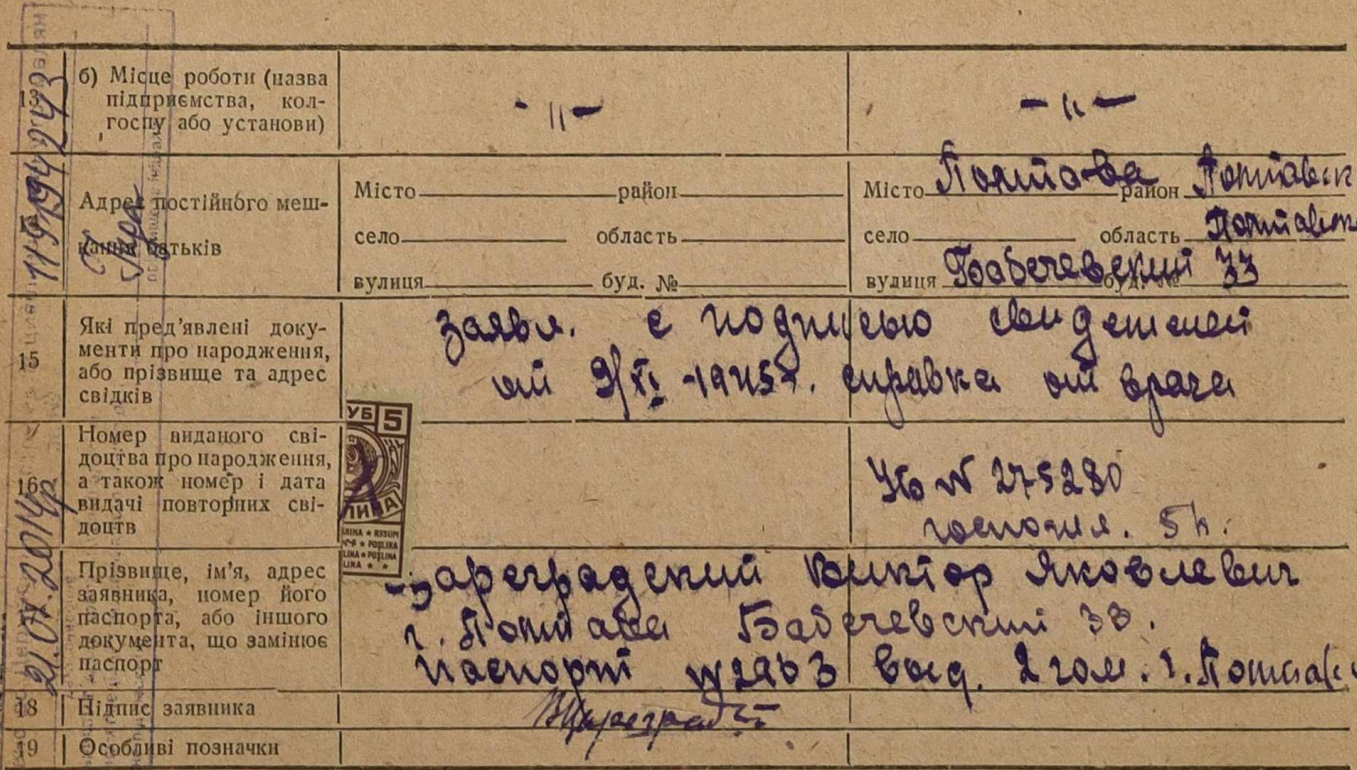 13 б) Місце роботи (назва
підприємства, кол-
госпу або установи)
-"-
-"-
Адрес постійного меш-
кання батьків
Місто район
село область
вулиця буд. №
Місто Полтава район Полтавск
село область Полтавск
вулиця Бабечевский буд. № 33
15 Які пред'явлені доку-
менти про народження,
або прізвище та адрес
свідків
заявл. с подписью свидетелей
от 9/XI-1945г. справка от врача
16 Номер виданого сві-
доцтва про народження,
а також номер і дата
видачі повторних сві-
доцтв
УБ 5
№ 275280
госпошл. 5 р.
Прізвище, ім'я, адрес
заявника, номер його
паспорта, або іншого
документа, що замінює
паспорт
Цареградский Виктор Яковлевич
г. Полтава Бабечевский 33.
Паспорт выд. 2 гом. г. Полтавы
18 Підпис заявника
ВЦареград
19 Особливі позначки
21.07.2014р